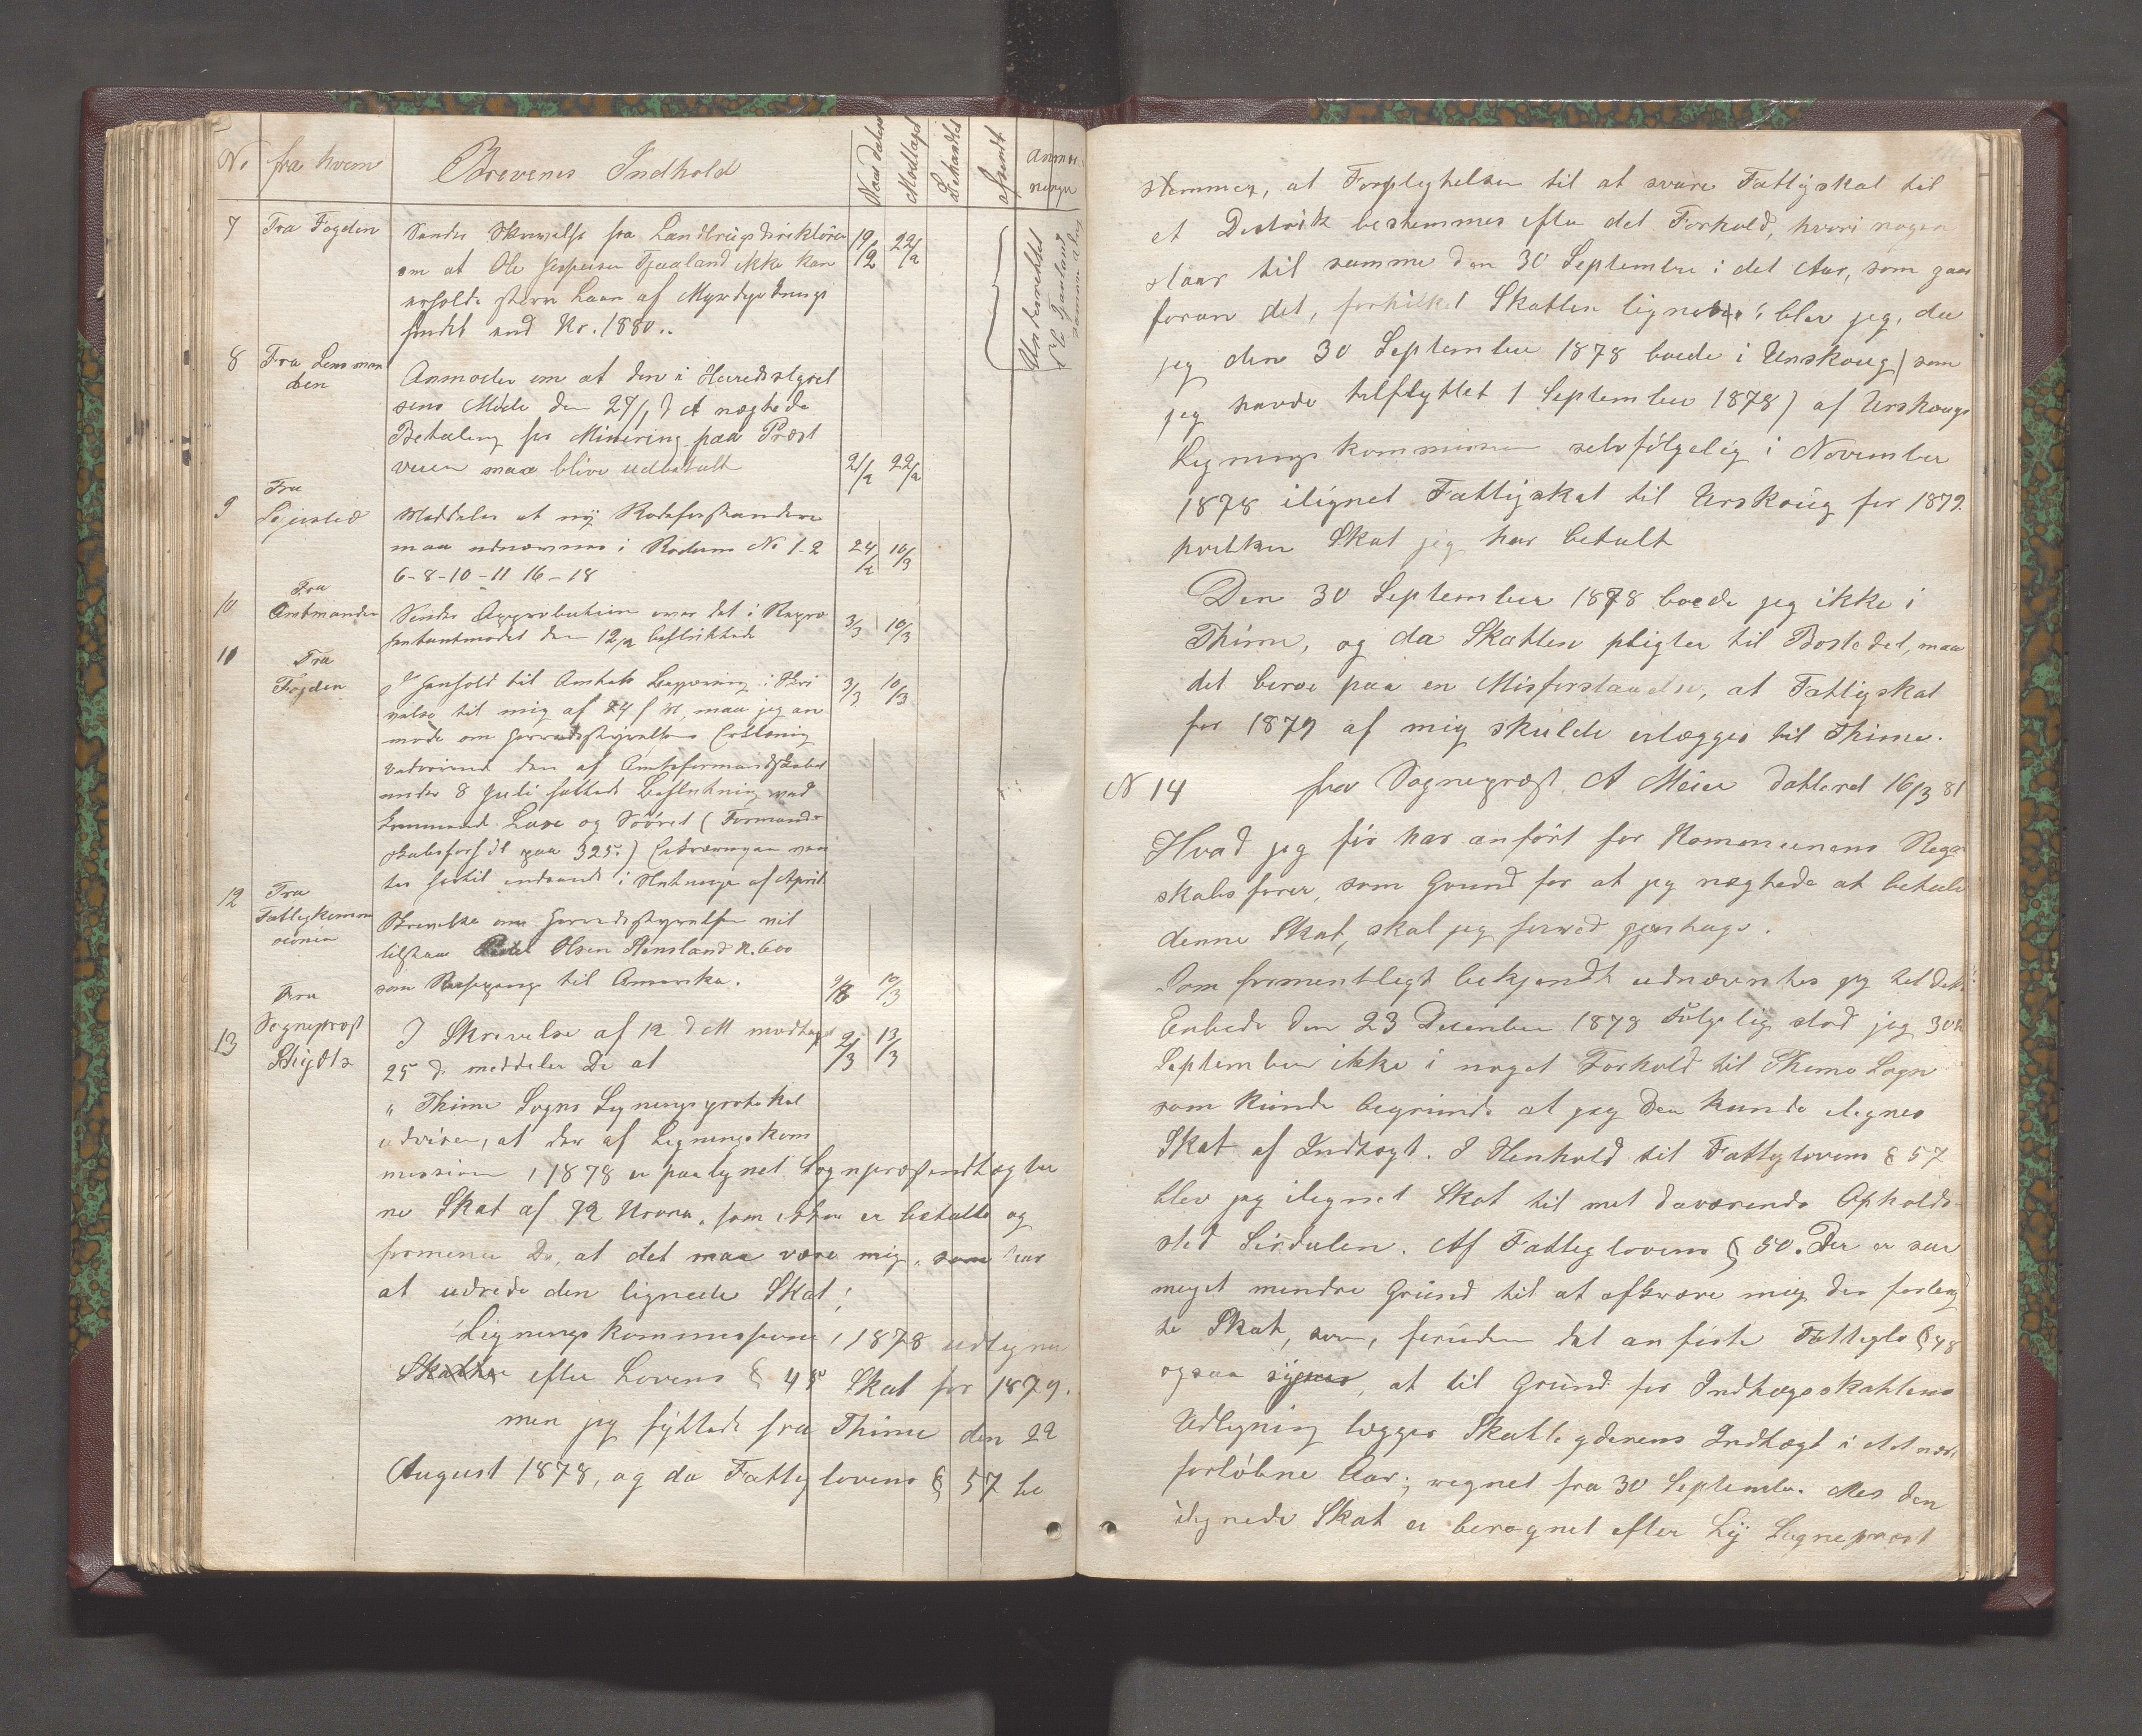 No fra hvem Brevenes Indhold Naar dateret Modtaget Behandlet afsendt Anmær-
ninger
7 Fra Fogden Sender Skrivelse fra Landbrugsdirektören 19/2 22/2
om at Ole Jespersen Gjaaland ikke kan
erholde större Laan af Myrdyrknings
fondet end Kr. 1880..
Underrettet
O E Gauland
samme dag
8 Fra Lensman
den
Anmoder om at den i Herredsstyrel
sens Møde den 27/1 d A nægtede
Betaling for Minering paa Præst
veien maa blive udbetalt 21/2 22/2
9 Fra
Sejersted Meddeler at ny Rodeforstandere
maa udnævnes i Roderne No 1-2 24/2 10/3
6-8-10-11 16-18
10 Fra
Amtmanden Sender Approbation over det i Repræ 3/3 10/3
sentantmødet den 12/2 besluttede
11 Fra
Fogden
I Henhold til Amtets Paategning i Skri 3/3 10/3
velse til mig af 24 f M, maa jeg an
mode om Herredsstyrelsens Erklæring
vedrörende den af Amtsformandskabet
under 8 Juli fattede Beslutning ved
kommende Luse og (Formands
skabsforh. pag 325.) Erklæringen ven
tes hertil indsendt i Slutningen af April
12 Fra
Fattigkommis
sionen
Skrivelse om Herredsstyrelsen vil
tilstaa Olsen Hinsland K. 600
som Reisepenge til Amerika. 9/3 10/3
13 Fra
Sogneprest
I Skrivelse af 12 d M modtaget 2/3 13/3
25 d. meddeler De at
" Thime Sogns Ligningsprotokol
udviser, at der af Ligningskom
missionen i 1878 er paalignet Sognepræstindtægter
ne Skat af 72 Kroner, som ikke er betalte og
formener De, at det maa være mig, som har
at udrede den lignede Skat;
Ligningskommissionen i 1878 udligner
Skatter efter Lovens § 45 Skat for 1879.
men jeg flyttede fra Thime den 22
August 1878, og da Fattiglovens § 57 be
stemmer, at Forpligtelsen til at svare Fattigskat til
et Distrik bestemmes efter det Forhold, hvori nogen
staar til samme den 30 September i det Aar, som gaar
foran det, forhvilket Skatten lignes; blev jeg, da
jeg den 30 September 1878 boede i Urskoug (som
jeg havde tilflyttet 1 September 1878) af Urskougs
Ligningskommission selvfölgelig i November
1878 ilignet Fattigskat til Urskoug for 1879.
hvilken Skat jeg har betalt
Den 30 September 1878 boede jeg ikke i
Thime, og da Skatten pligter til Bostedet, maa
det beroe paa en Misforstaaelse, at Fattigskat
for 1879 af mig skulde erlægges til Thime.
N 14 fra Sogneprest A Meier datteret 16/3 81
Hvad jeg för har anfört for Kommunens Regn
skabsförer, som Grund for at jeg nægtede at betale
denne Skat, skal jeg herved gjentage.
Som formentligt bekjendt udnævntes jeg til dette
Embede den 23 December 1878 Fölgelig stod jeg 30te
September ikke i noget Forhold til Thime Sogn
som kunde begrunde at jeg der kunde ilignes
Skat af Indtægt. I Henhold til Fattiglovens § 57
blev jeg ilignet Skat til mit daværende Opholds-
sted Sirdalen. Af Fattiglovens § 50. Der er saa
meget mindre Grund til at afkræve mig den forlang
te Skat, som, foruden det anförte Fattiglo § 48
ogsaa siges, at til Grund for Indtægsskattens
Udligning lægges Skatteyderens Indtægt i det næst
forlöbne Aar, regnet fra 30 September. Mes den
ilignede Skat er beregnet efter Sogneprest